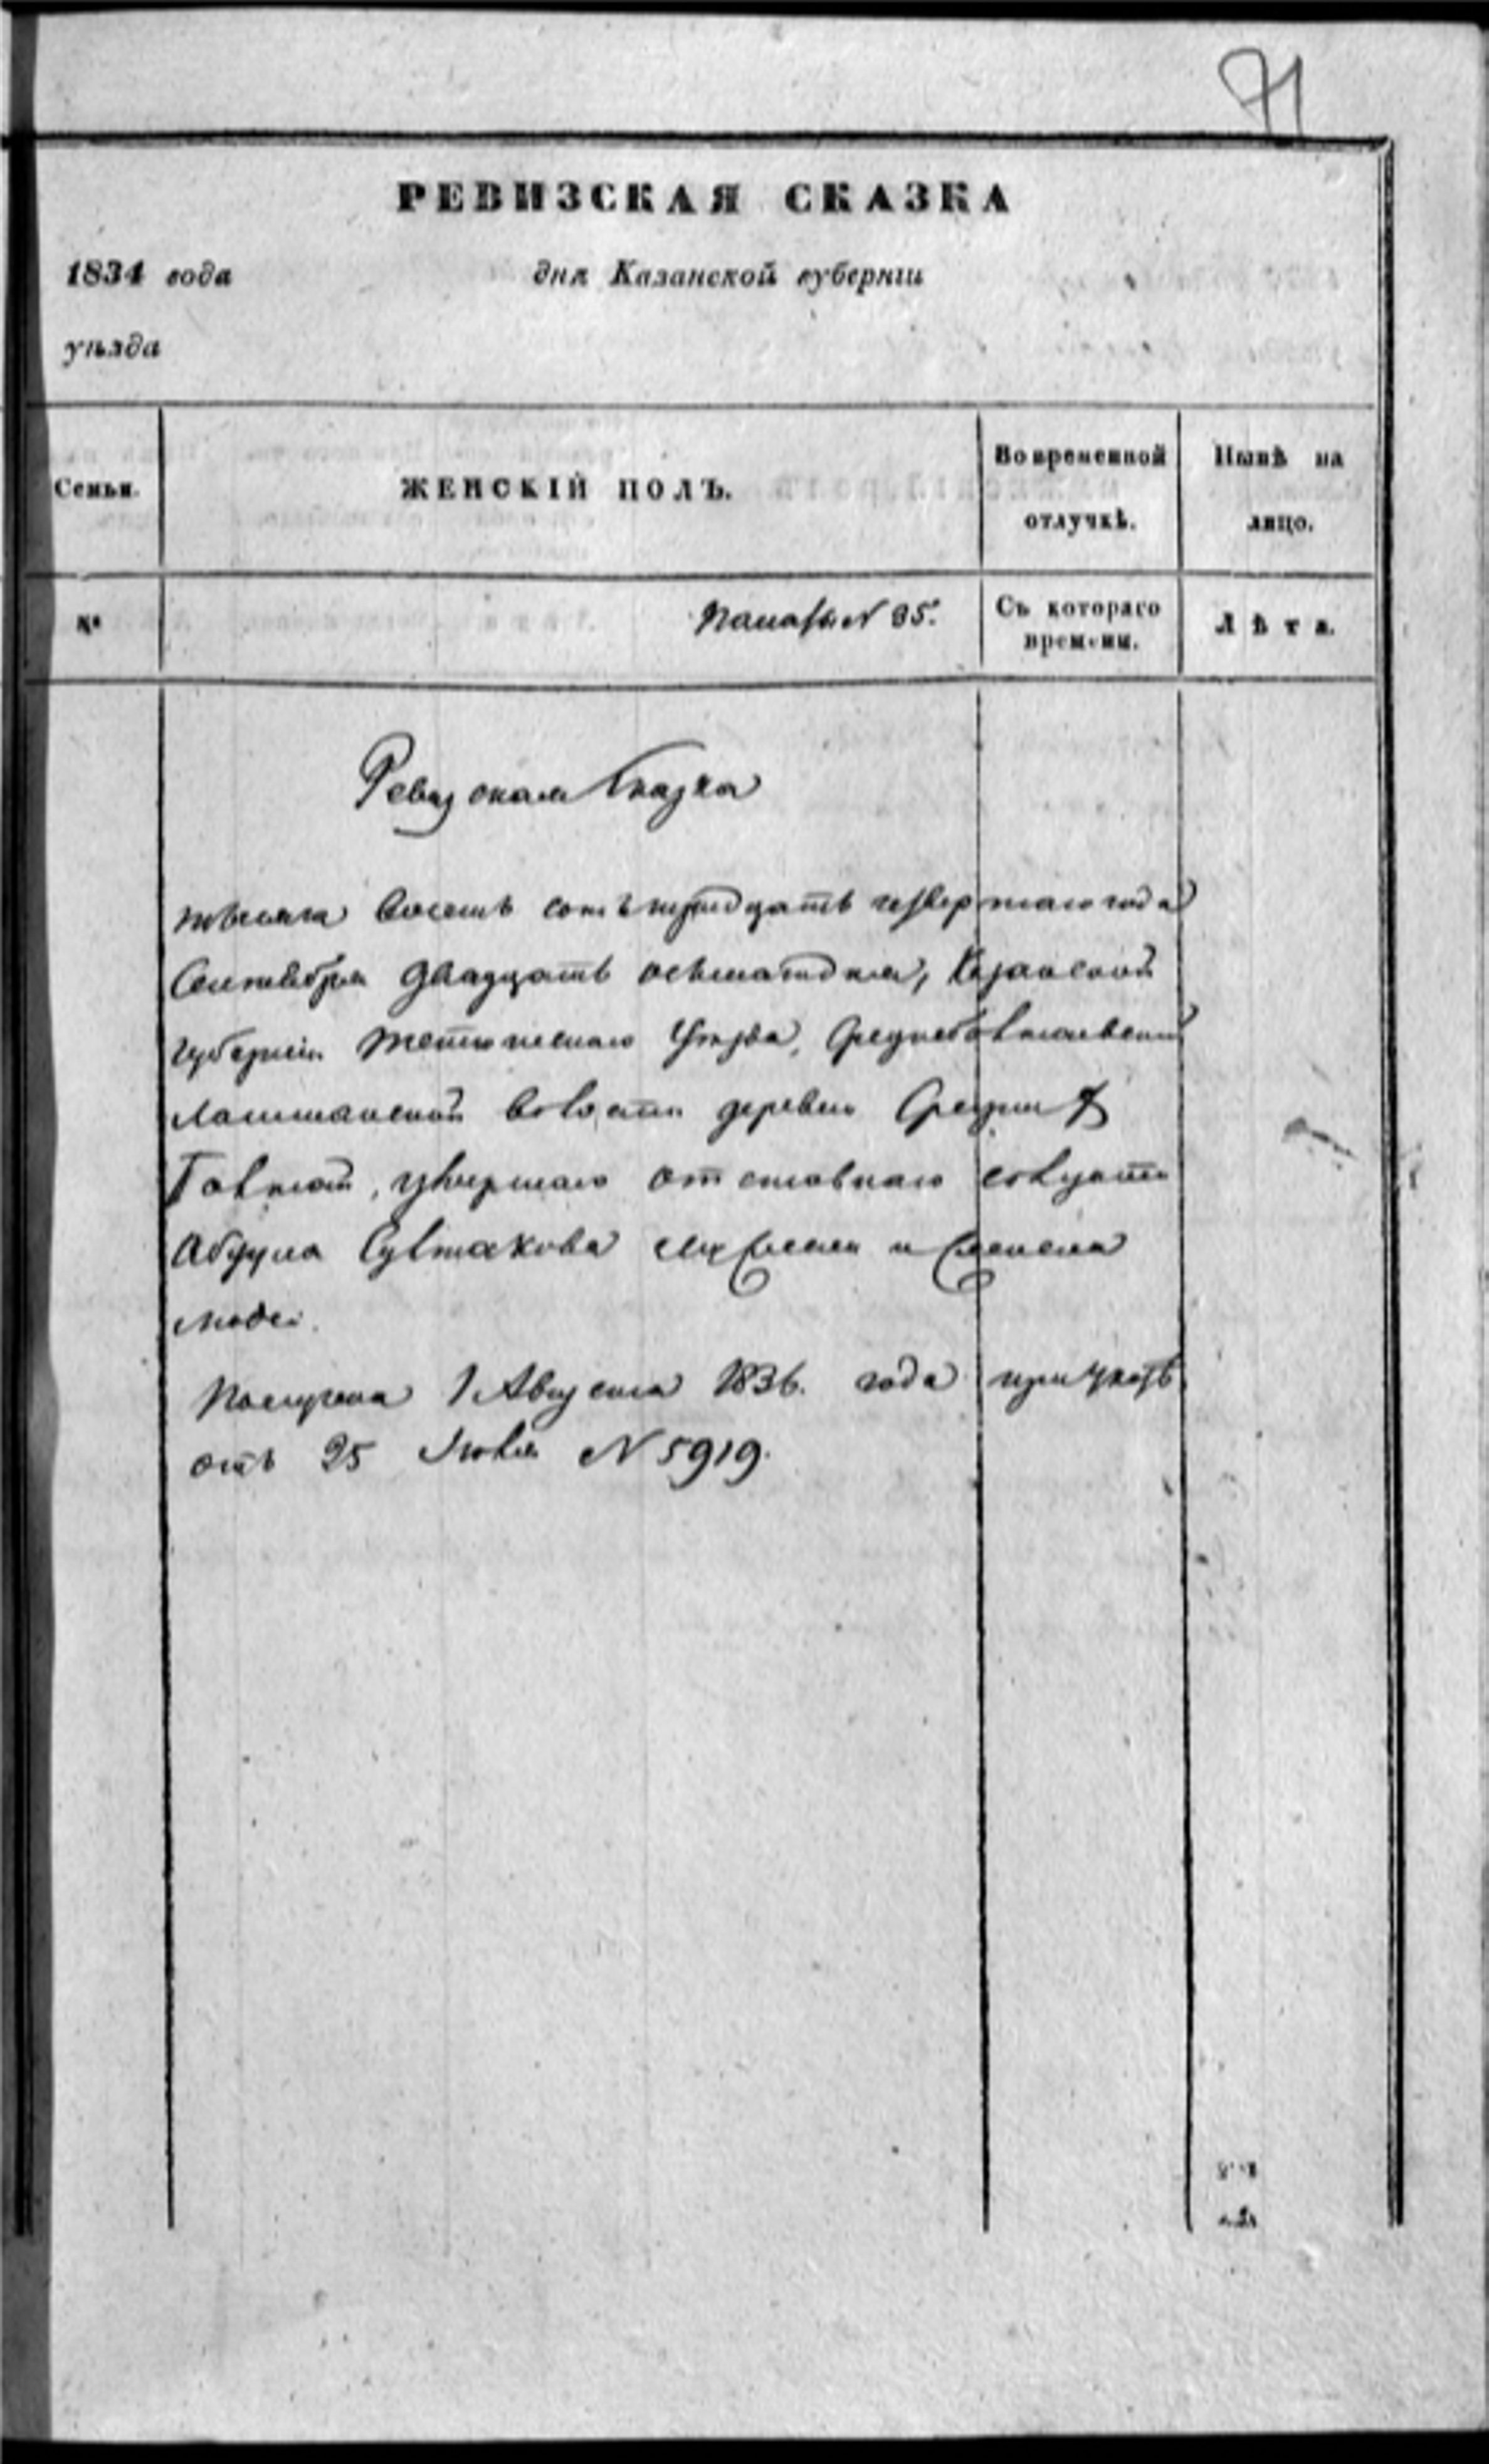 71
РЕВИЗСКАЯ СКАЗКА
1834 года дня Казанской губернiи
уѣзда
Семьи. ЖЕНСКIЙ ПОЛЪ. Во временной отлучкѣ. Нынѣ на лицо.
№ N 95. Съ котораго времени. Лѣта.
Ревизская Сказка
тысяча восемь сотъ тридцать четвертаго года
Сентября двадцать осьмаго дня, Казанской
губернiи Тетюшскаго Уѣзда,
Лашманской волости деревни Средних
умершаго отставнаго солдата
Абдула Султакова мужеска и женска
людей.
Получена 1 Августа 1836. года при указѣ
отъ 25 Июля N 5919.